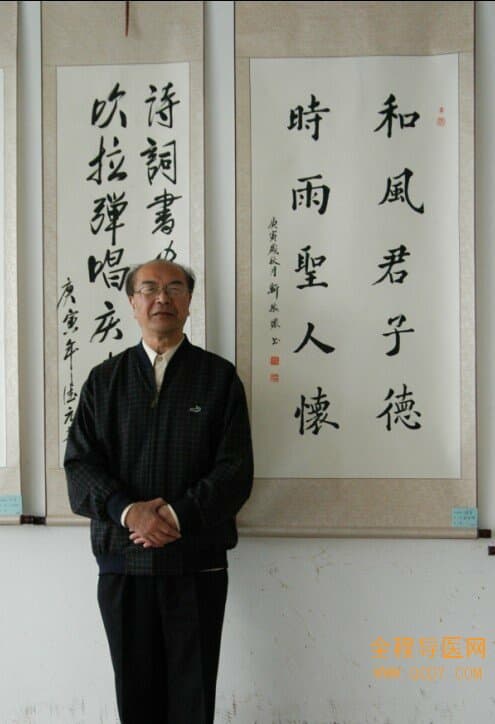 和風君子德
時雨聖人懷
庚寅歲秋月
詩詞書
吹拉彈唱庆
庚寅年
全程导医网